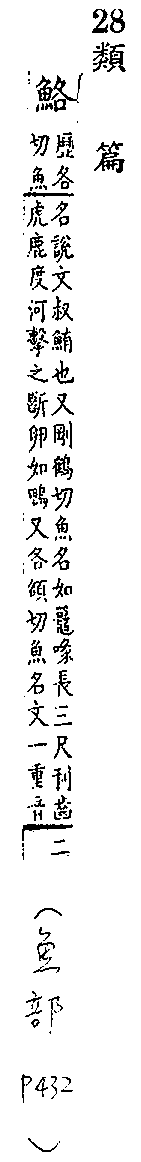 28 類 篇
鮥
歷各名說文叔鮪也又剛鶴切魚名如鼉喙長三尺刊齒二
切魚虎鹿度河擊之斷卵如鴨又各頟切魚名文一重音
(魚部 P432)